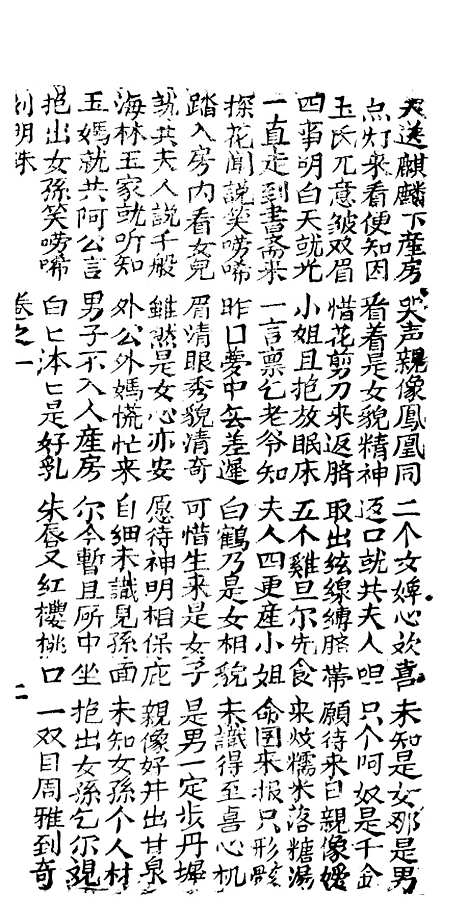 天送麒麟下產房 哭声親像鳳凰同 二个女婢心欢喜 未知是女耶是男
点灯来看便知因 看着是女貌精神 迈口就共夫人呾 只个呵奴是千金
玉氏兀意皱双眉 惜花剪刀来返臍 取出絃線縛臍帶 願待来日親像嬡
四事明白天就光 小姐且抱放眠床 五个雞旦尔先食 来炆糯米落糖湯
一直走到書斎来 一言禀乞老爷知 夫人四更產小姐 命图来报只形骸
探花闻説笑唠唏 昨日夢中無差遲 白鶴乃是女相貌 未識得至喜心机
踏入房内看女兒 眉清眼秀貌清奇 可惜生来是女子 是男一定步丹墀
就共夫人説千般 雖然是女心亦安 愿待神明相保庇 親像好井出甘泉
海林玉家就听知 外公外媽慌忙来 自細未識見孫面 未知女孫个人材
玉媽就共阿公言 男子不入人產房 尔今暫且厛中坐 抱出女孫乞尔覌
抱出女孫笑唠唏 白匕沐匕是好乳 朱唇又紅櫻桃口 一双目周雅到奇
刘明珠 卷之一 二